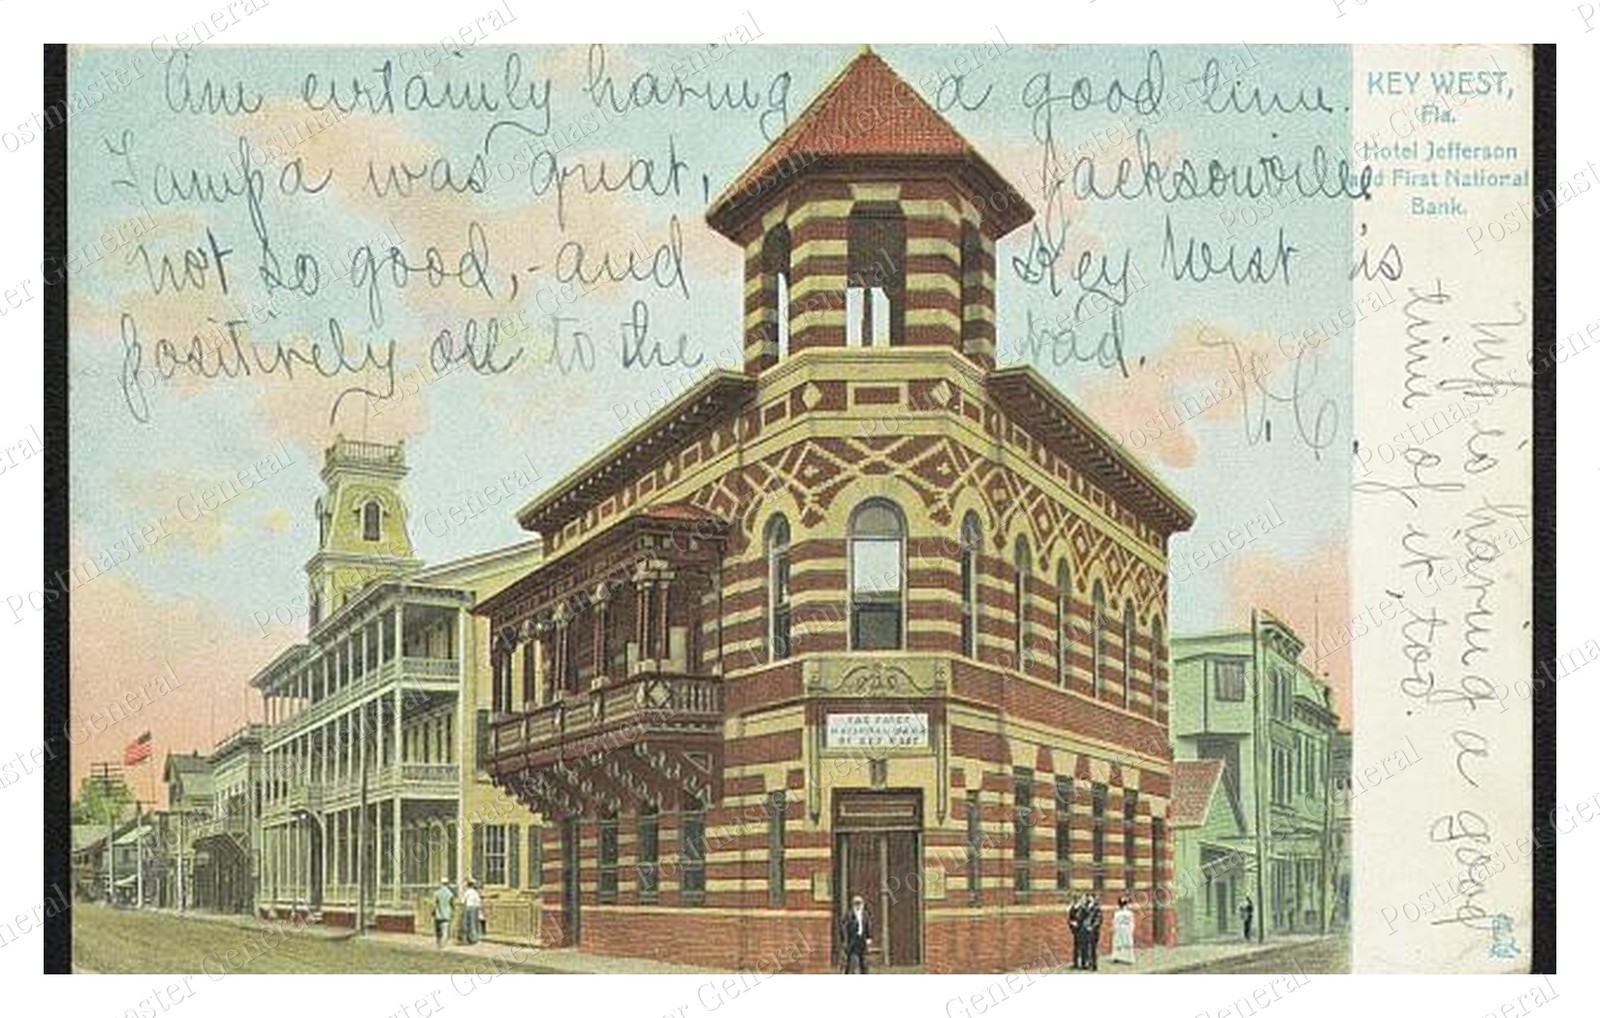 Am certainly having a good time.
Tampa was great, Jacksonville
not so good, - and Key West is
positively all to the bad. V.C.
KEY WEST,
Fla.
Hotel Jefferson
and First National
Bank.
My is having a good
time of it, too.
THE FIRST
NATIONAL BANK
OF KEY WEST
Postmaster General